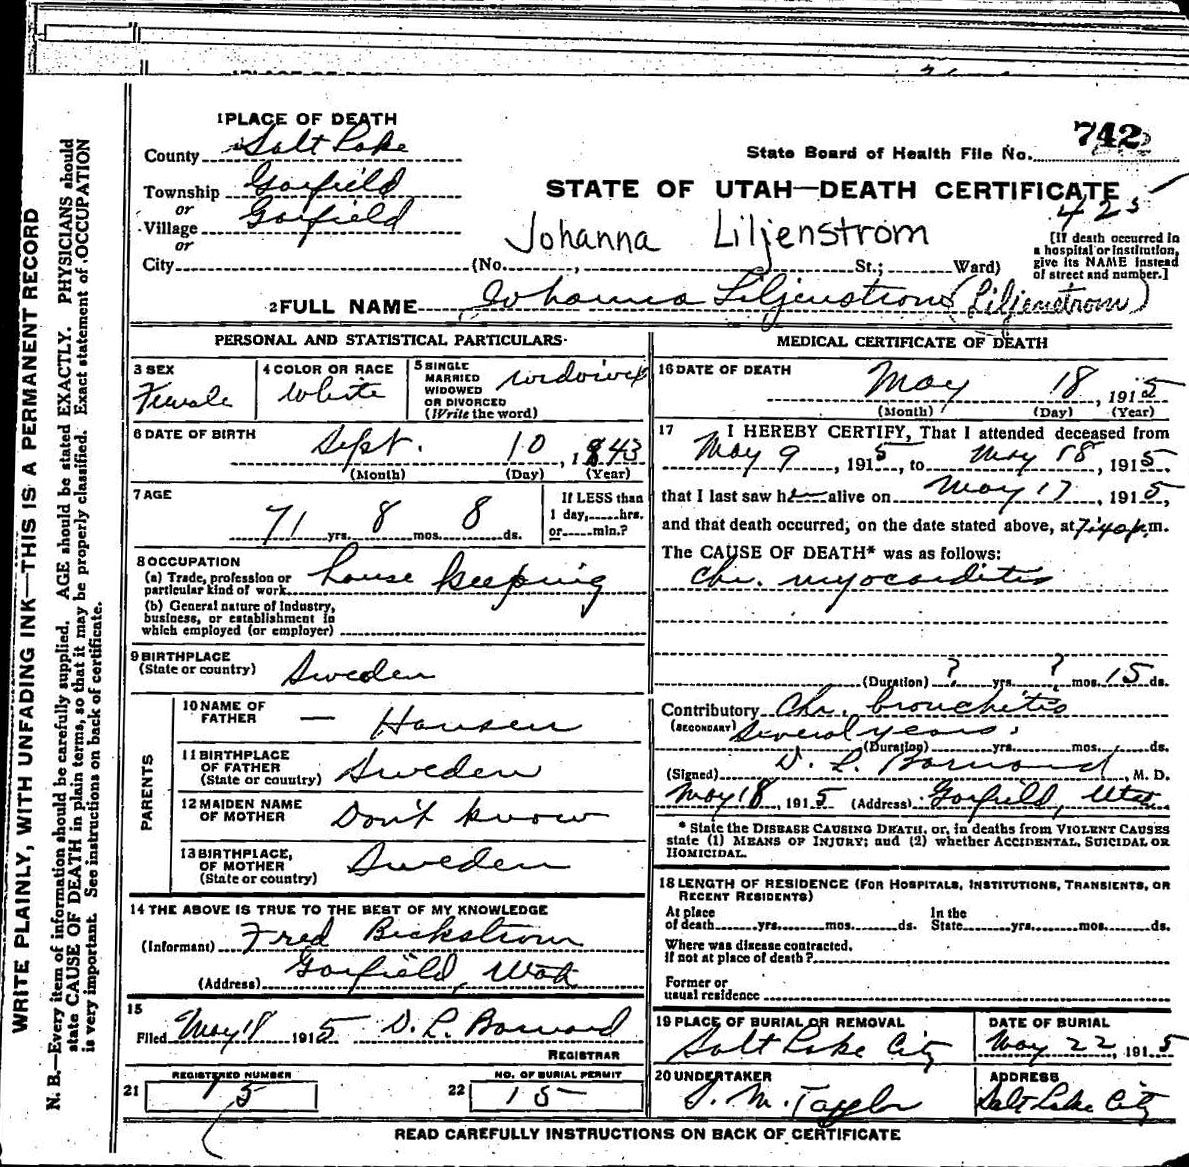 WRITE PLAINLY, WITH UNFADING INK—THIS IS A PERMANENT RECORD
N. B.—Every item of information should be carefully supplied. AGE should be stated EXACTLY. PHYSICIANS should
state CAUSE OF DEATH in plain terms, so that it may be properly classified. Exact statement of OCCUPATION
is very important. See instructions on back of certificate.
1 PLACE OF DEATH
County Salt Lake
Township Garfield
or
Village Garfield
or
City (No. , St.; Ward)
State Board of Health File No. 742
STATE OF UTAH—DEATH CERTIFICATE
425
Johanna Liljenstrom
[If death occurred in
a hospital or institution,
give its NAME instead
of street and number.]
2 FULL NAME Johanna Liljenstrom (Liljenstrom)
PERSONAL AND STATISTICAL PARTICULARS
3 SEX
Female
4 COLOR OR RACE
White
5 SINGLE
MARRIED
WIDOWED
OR DIVORCED
(Write the word)
widowed
6 DATE OF BIRTH
Sept. 10, 1843
(Month) (Day) (Year)
7 AGE
71 yrs. 8 mos. 8 ds.
If LESS than
1 day, hrs.
or min.?
8 OCCUPATION
(a) Trade, profession or
particular kind of work house keeping
(b) General nature of Industry,
business, or establishment in
which employed (or employer)
9 BIRTHPLACE
(State or country) Sweden
PARENTS
10 NAME OF
FATHER — Hansen
11 BIRTHPLACE
OF FATHER
(State or country) Sweden
12 MAIDEN NAME
OF MOTHER Don't know
13 BIRTHPLACE,
OF MOTHER
(State or country) Sweden
14 THE ABOVE IS TRUE TO THE BEST OF MY KNOWLEDGE
(Informant) Fred Beckstrom
(Address) Garfield, Utah
15
Filed May 18 1915 D. L. Barnard
REGISTRAR
REGISTERED NUMBER
21 15
NO. OF BURIAL PERMIT
22 15
MEDICAL CERTIFICATE OF DEATH
16 DATE OF DEATH
May 18, 1915
(Month) (Day) (Year)
17 I HEREBY CERTIFY, That I attended deceased from
May 9, 1915, to May 18, 1915,
that I last saw her alive on May 17, 1915,
and that death occurred, on the date stated above, at 7:40 p.m.
The CAUSE OF DEATH* was as follows:
Chr. myocarditis
(Duration) ? yrs. ? mos. 15 ds.
Contributory Chr. bronchitis
(SECONDARY) Several years.
(Duration) yrs. mos. ds.
(Signed) D. L. Barnard, M. D.
May 18, 1915 (Address) Garfield, Utah
* State the DISEASE CAUSING DEATH, or, in deaths from VIOLENT CAUSES
state (1) MEANS OF INJURY; and (2) whether ACCIDENTAL, SUICIDAL OR
HOMICIDAL.
18 LENGTH OF RESIDENCE (FOR HOSPITALS, INSTITUTIONS, TRANSIENTS, OR
RECENT RESIDENTS)
At place
of death yrs. mos. ds.
In the
State yrs. mos. ds.
Where was disease contracted,
if not at place of death?
Former or
usual residence
19 PLACE OF BURIAL OR REMOVAL
Salt Lake City
DATE OF BURIAL
May 22, 1915
20 UNDERTAKER
S. M. Taylor
ADDRESS
Salt Lake City
READ CAREFULLY INSTRUCTIONS ON BACK OF CERTIFICATE